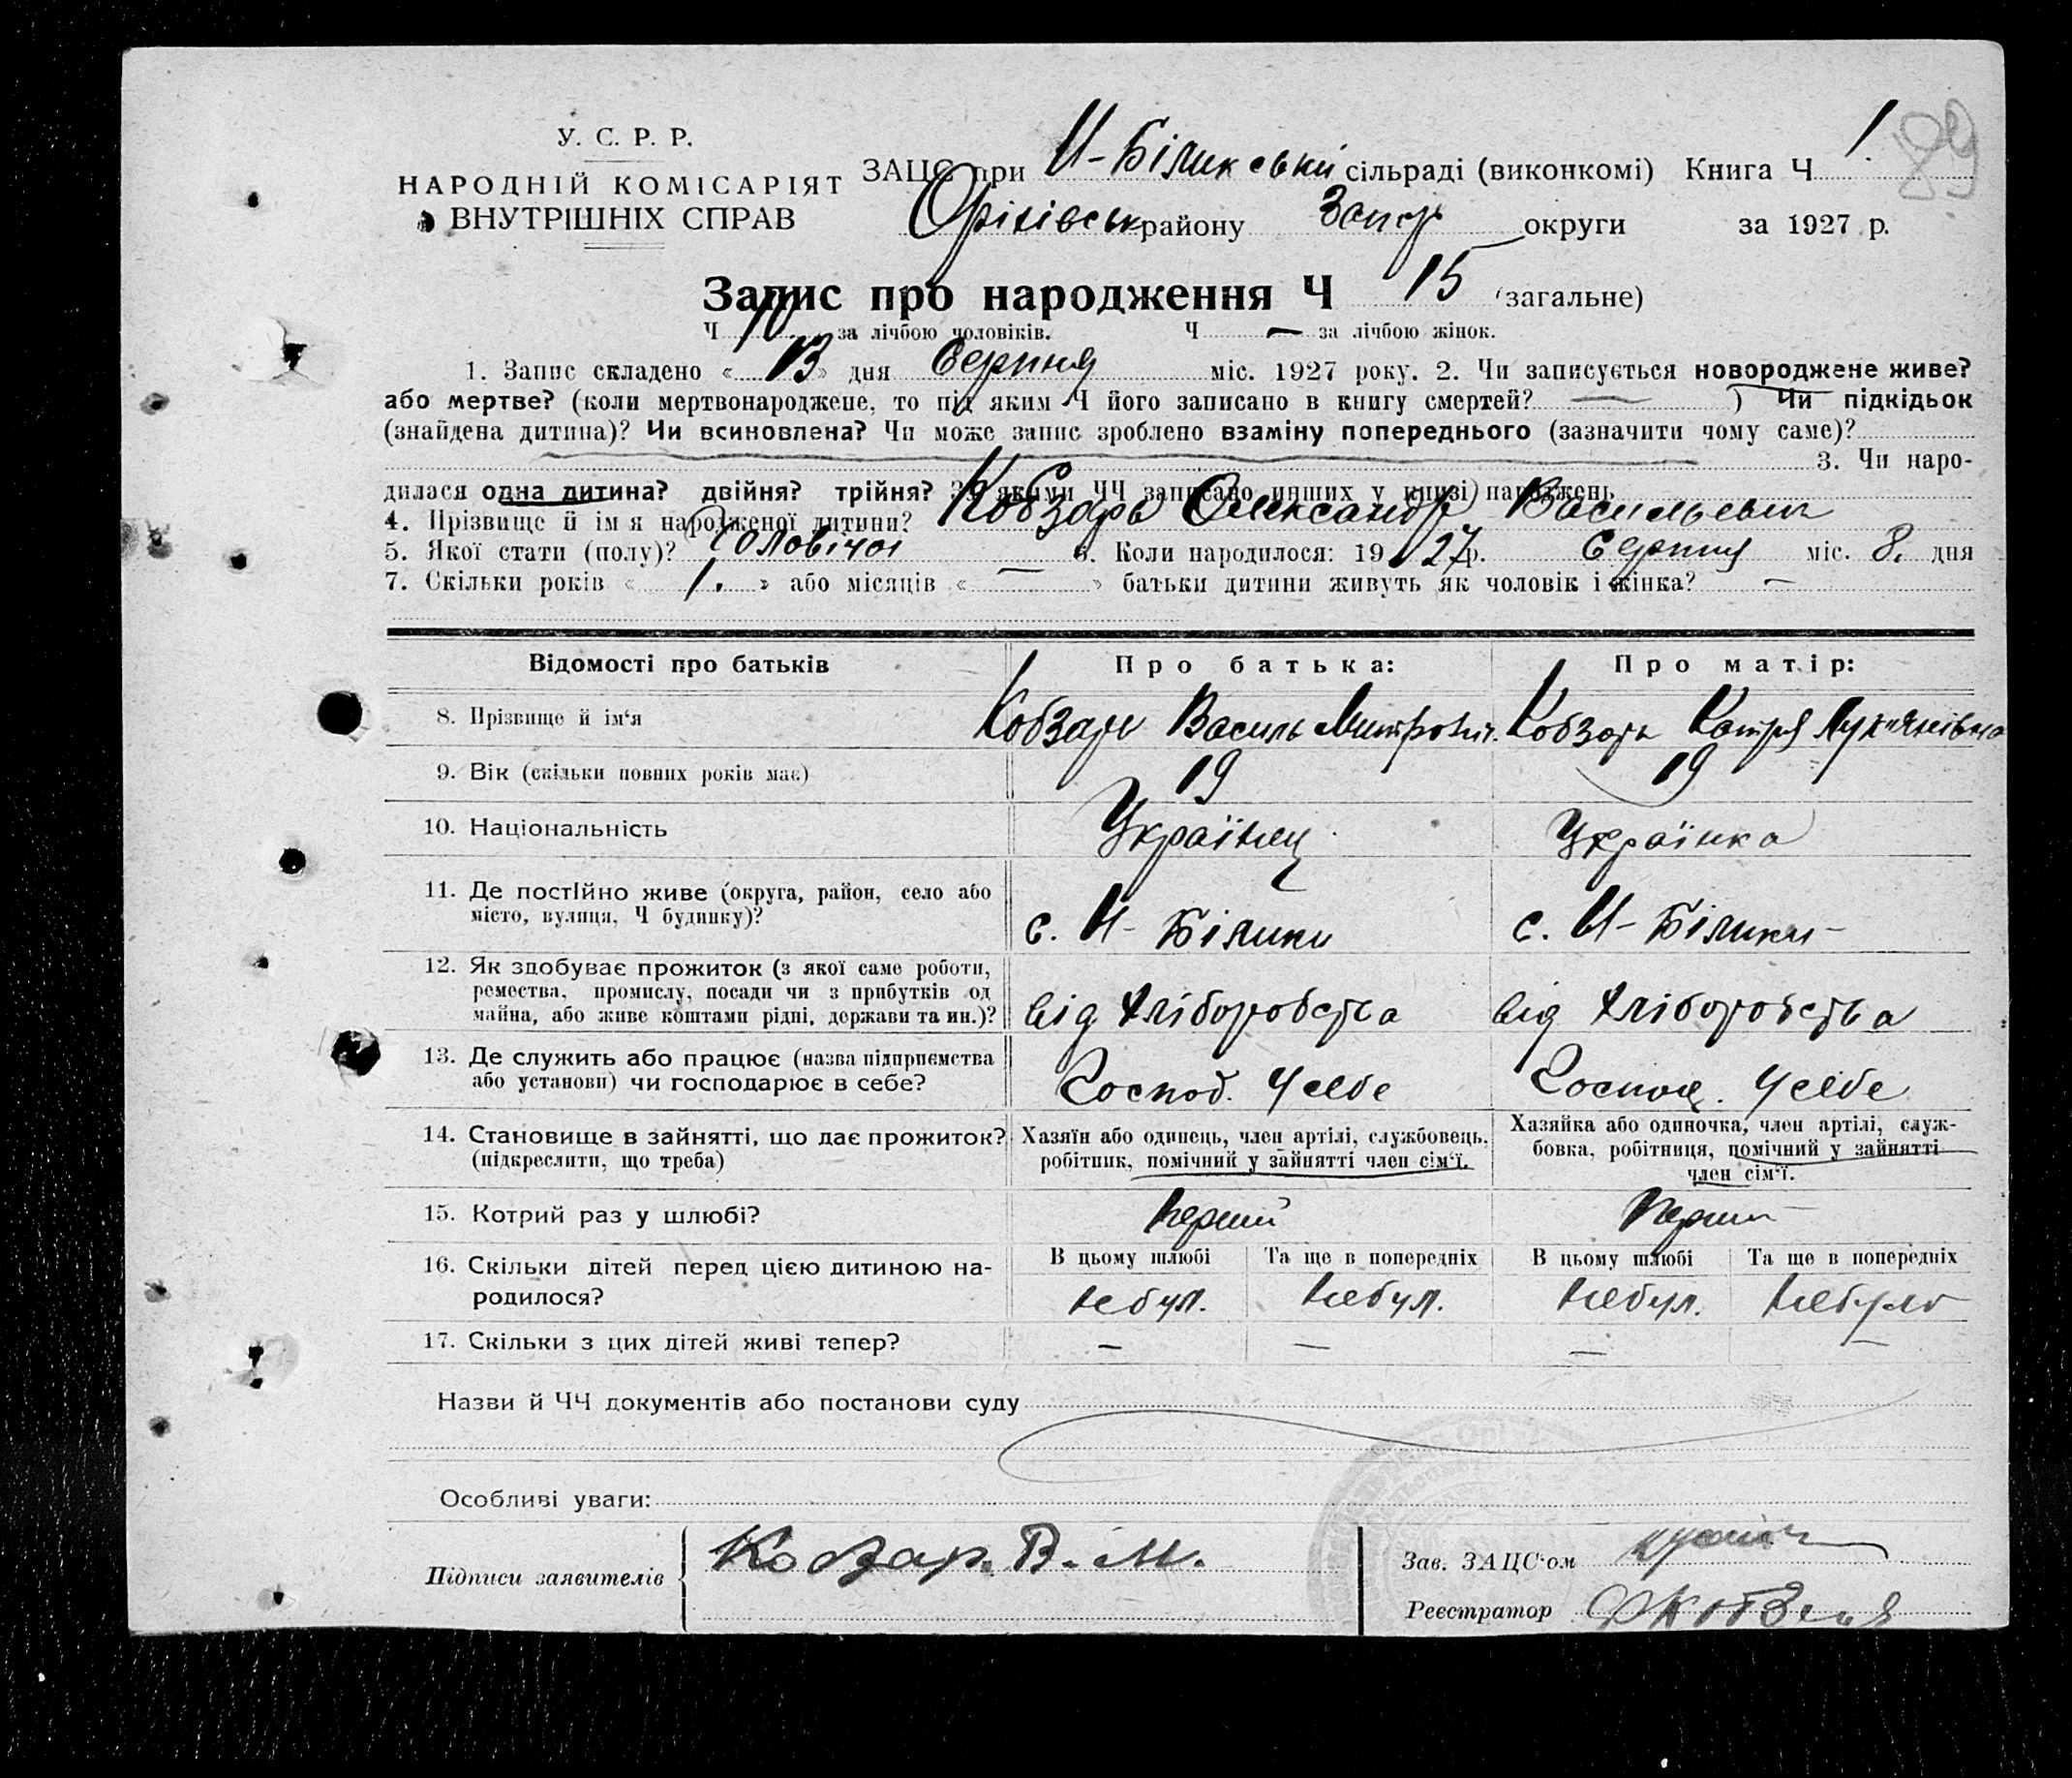 89
У. С. Р. Р.
НАРОДНІЙ КОМІСАРІЯТ
ВНУТРІШНІХ СПРАВ
ЗАЦС при И-Біликській сільраді (виконкомі) Книга Ч 1.
Оріхівськ району Запор округи за 1927 р.
Запис про народження Ч 15 (загальне)
Ч 10 за лічбою чоловіків. Ч — за лічбою жінок.
1. Запис складено «13» дня Серпня міс. 1927 року. 2. Чи записується новороджене живе?
або мертве? (коли мертвонароджене, то під яким Ч його записано в книгу смертей? — ) Чи підкідьок
(знайдена дитина)? Чи всиновлена? Чи може запис зроблено взаміну попереднього (зазначити чому саме)?
3. Чи наро-
дилася одна дитина? двійня? трійня? За якими ЧЧ записано инших у книзі народжень
4. Прізвище й ім я народженої дитини? Кобзарь Олександр Васильевич
5. Якої стати (полу)? Чоловічої 6. Коли народилося: 1927р. Серпня міс. 8. дня
7. Скільки років « 1. » або місяців « — » батьки дитини живуть як чоловік і жінка? —
Відомості про батьків Про батька: Про матір:
8. Прізвище й ім‘я Кобзарь Василь Митрович. Кобзарь Катря Лук'янівна
9. Вік (скільки повних років має) 19 19
10. Національність Українец Українка
11. Де постійно живе (округа, район, село або
місто, вулиця, Ч будинку)? с. И- Білики с. И- Білики-
12. Як здобуває прожиток (з якої саме роботи,
ремества, промислу, посади чи з прибутків од
майна, або живе коштами рідні, держави та ин.)? від хліборобства від хліборобства
13. Де служить або працює (назва підприємства
або установи) чи господарює в себе? Господ. Усебе Господ. Усебе
14. Становище в зайнятті, що дає прожиток?
(підкреслити, що треба)
Хазяїн або одинець, член артілі, службовець,
робітник, помічний у зайнятті член сім‘ї.
Хазяйка або одиночка, член артілі, служ-
бовка, робітниця, помічний у зайнятті
член сім‘ї.
15. Котрий раз у шлюбі? перший Перший
16. Скільки дітей перед цією дитиною на-
родилося?
В цьому шлюбі Та ще в попередніх В цьому шлюбі Та ще в попередніх
небул. небул. небул. небуло
17. Скільки з цих дітей живі тепер? — — — —
Назви й ЧЧ документів або постанови суду
Особливі уваги:
Підписи заявителів Кобзар. В. М.
Зав. ЗАЦС‘ом
Реєстратор